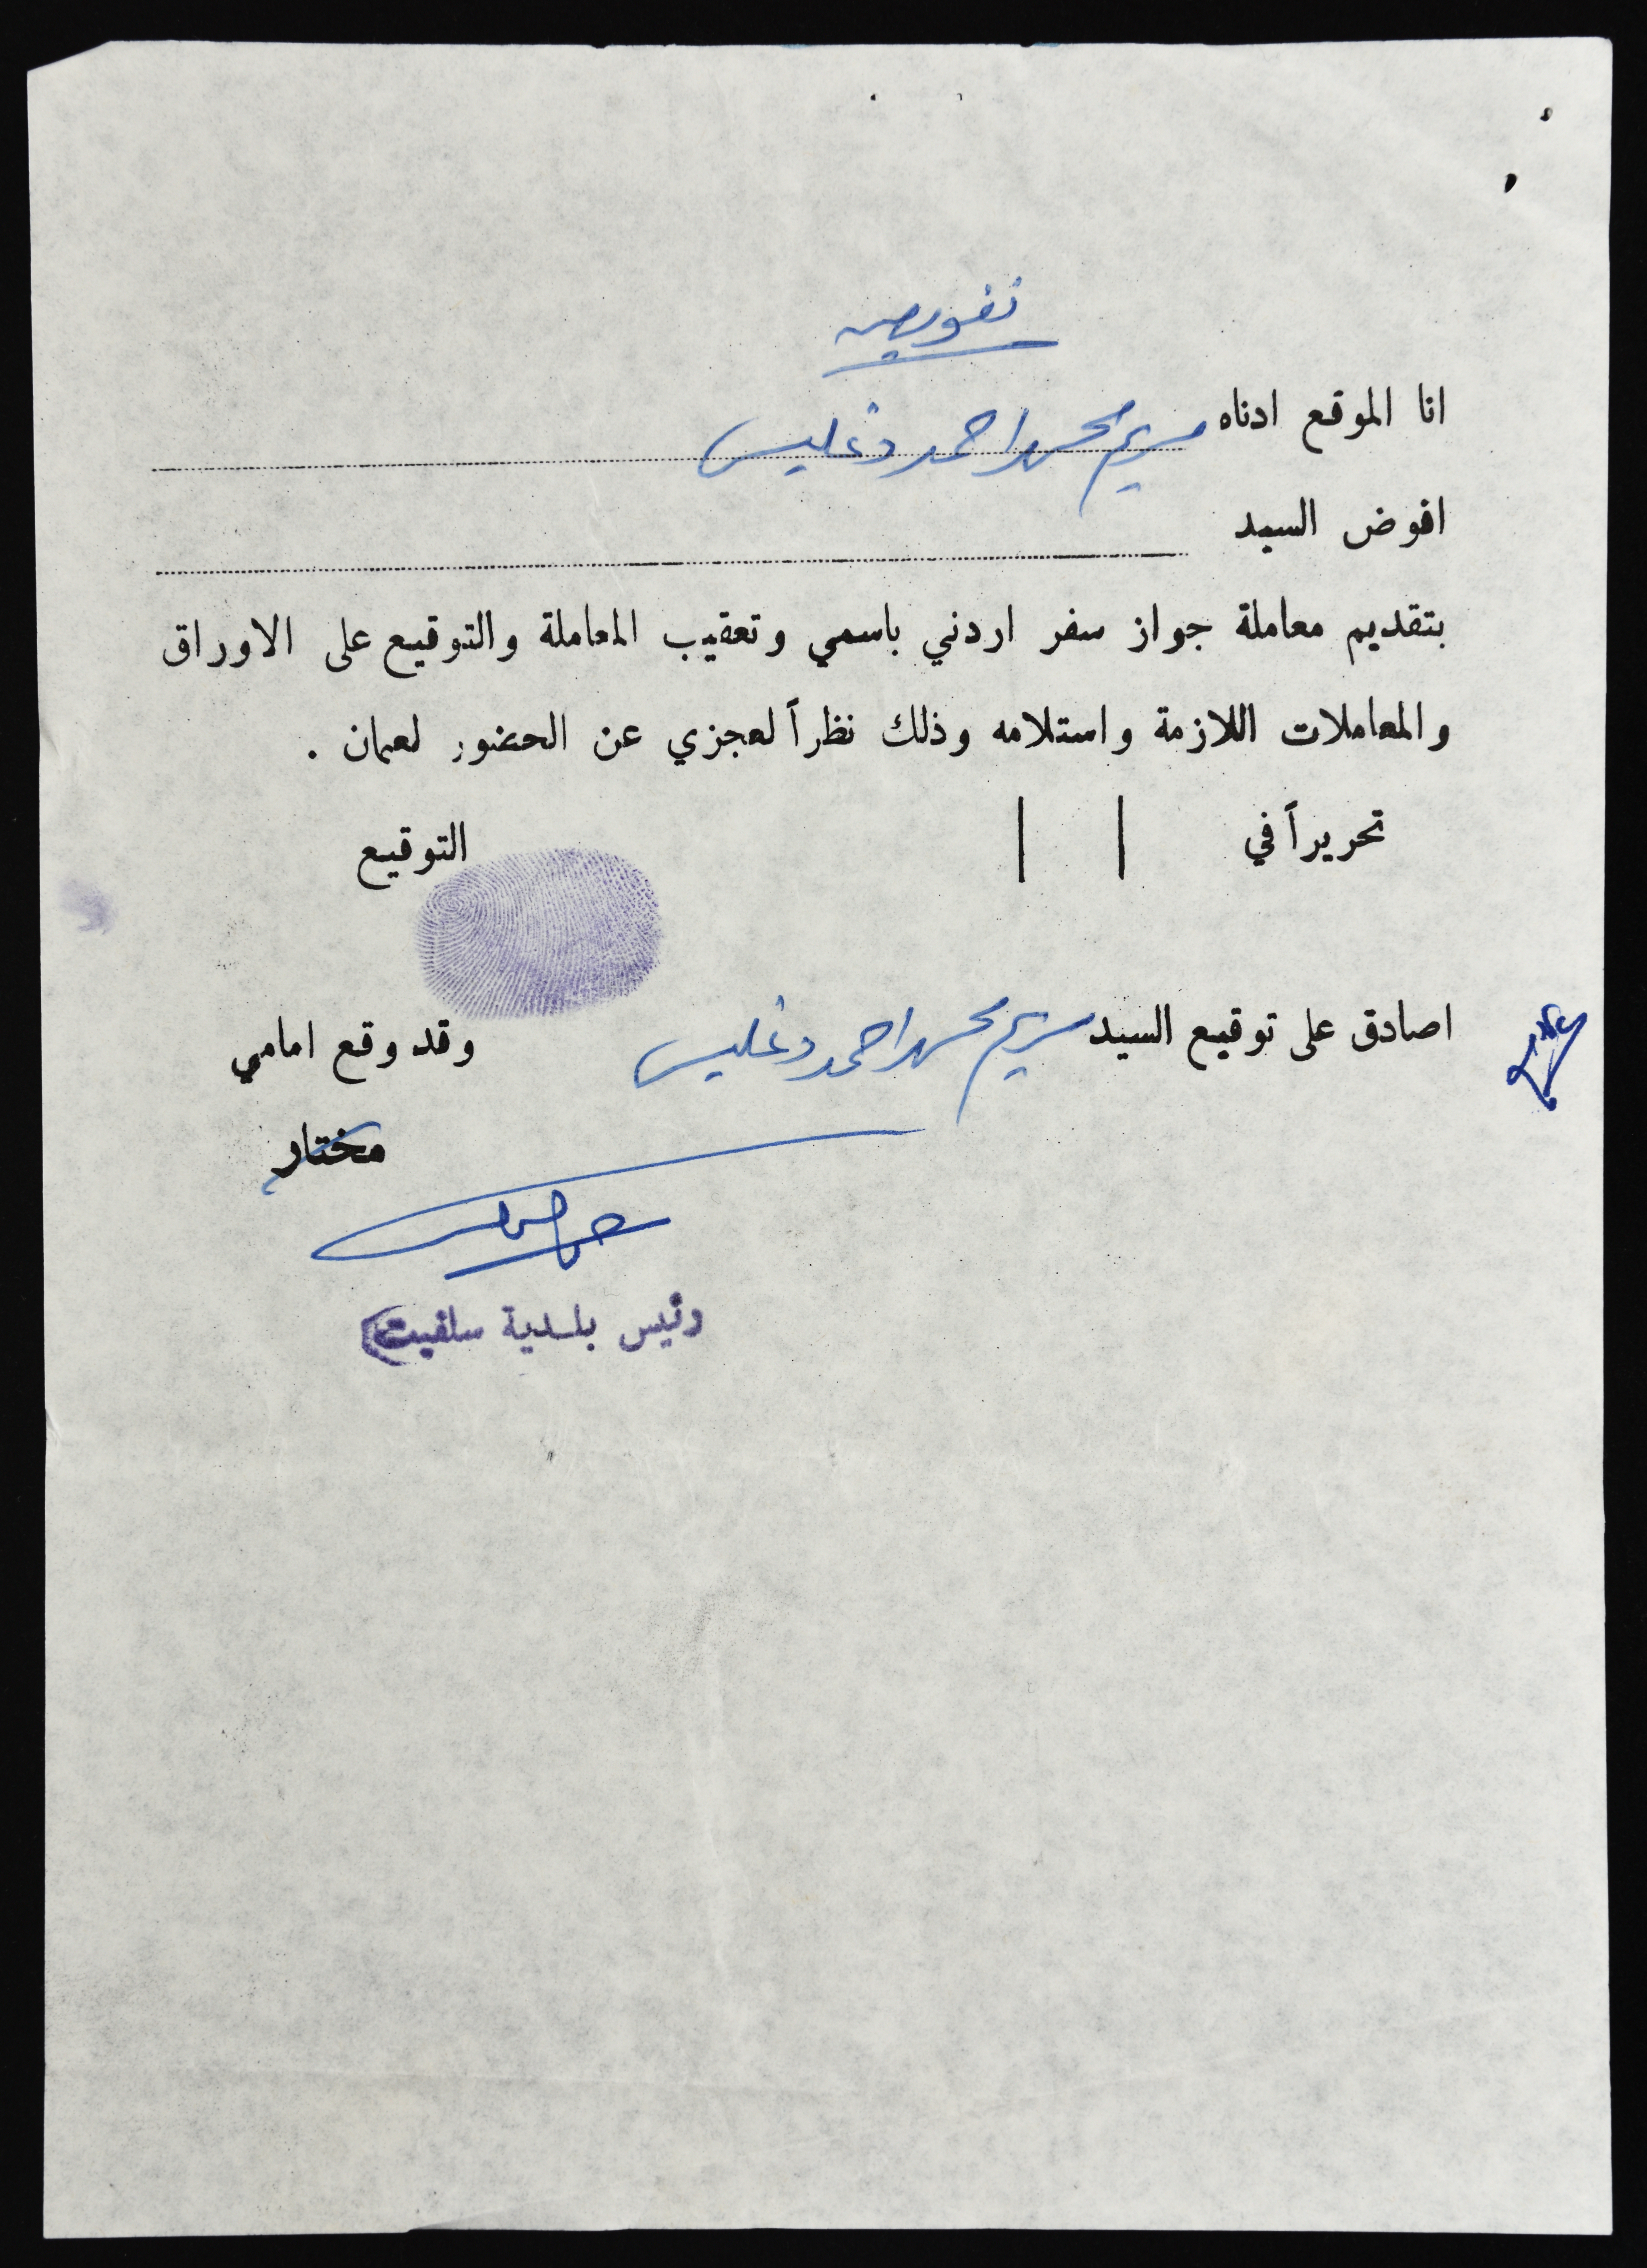 تفويض
انا الموقع ادناه مريم محمد احمد دغليس
افوض السيد
بتقديم معاملة جواز سفر اردني باسمي وتعقيب المعاملة والتوقيع على الاوراق
والمعاملات اللازمة واستلامه وذلك نظراً لعجزي عن الحضور لعمان .
تحريراً في / / التوقيع
اصادق على توقيع السيد مريم محمد احمد دغليس وقد وقع امامي
مختار
رئيس بلدية سلفيت